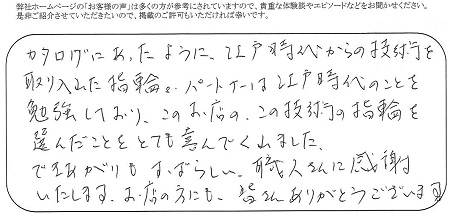 弊社ホームページの「お客様の声」は多くの方が参考にされていますので、貴重な体験談やエピソードなどをお聞かせください。
是非ご紹介させていただきたいので、掲載のご許可もいただければ幸いです。
カタログにあったように、江戸時代からの技術を
取り入れた指輪。パートナーは江戸時代のことを
勉強しており、このお店の、この技術の指輪を
選んだことをとても喜んでくれました。
できあがりもすばらしい。職人さんに感謝
いたします。お店の方にも、皆さんありがとうございます